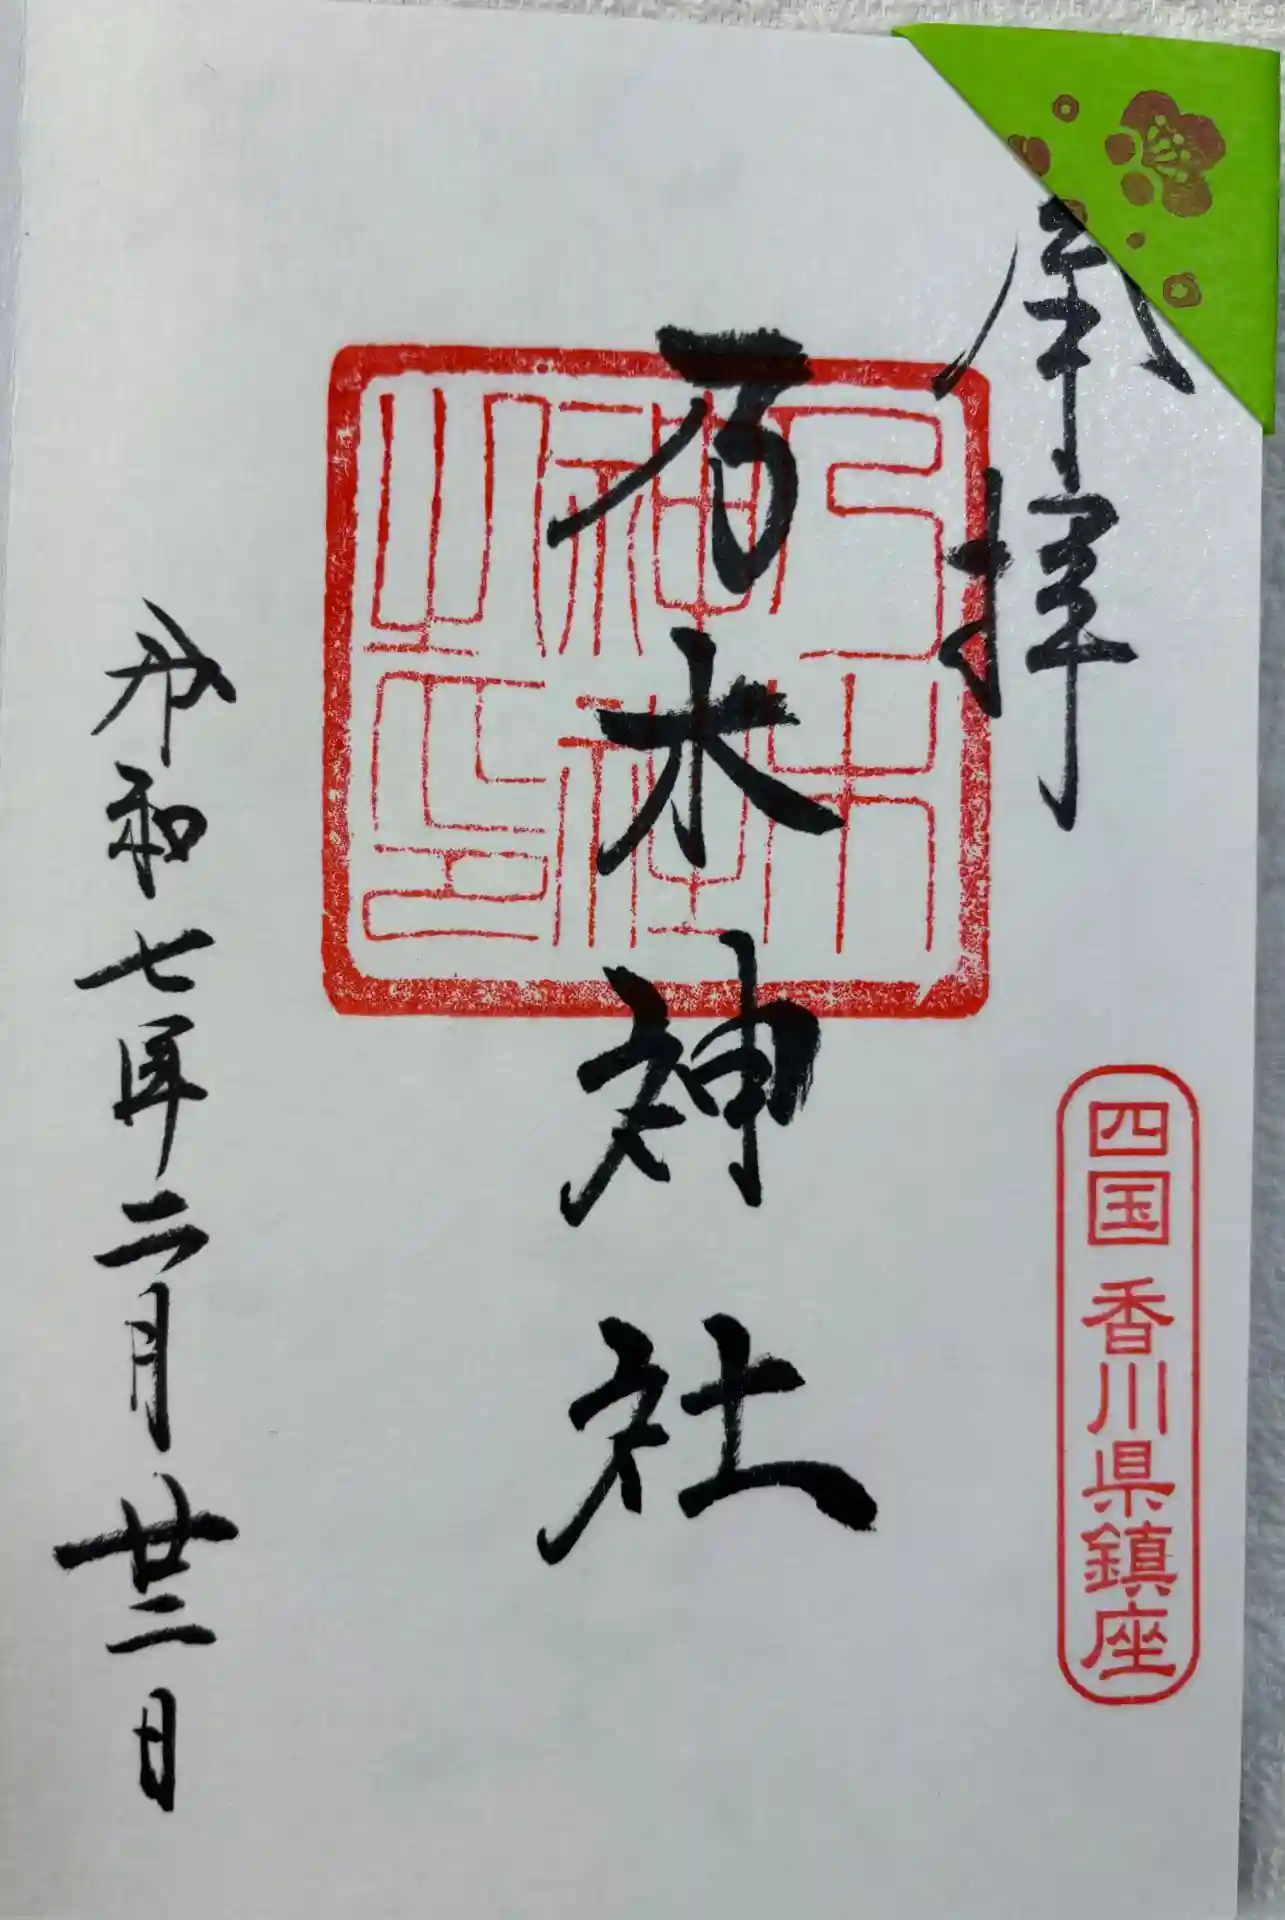 奉拝
四国 香川県鎮座
乃木神社
乃木
神社
之印
令和七年二月廿二日